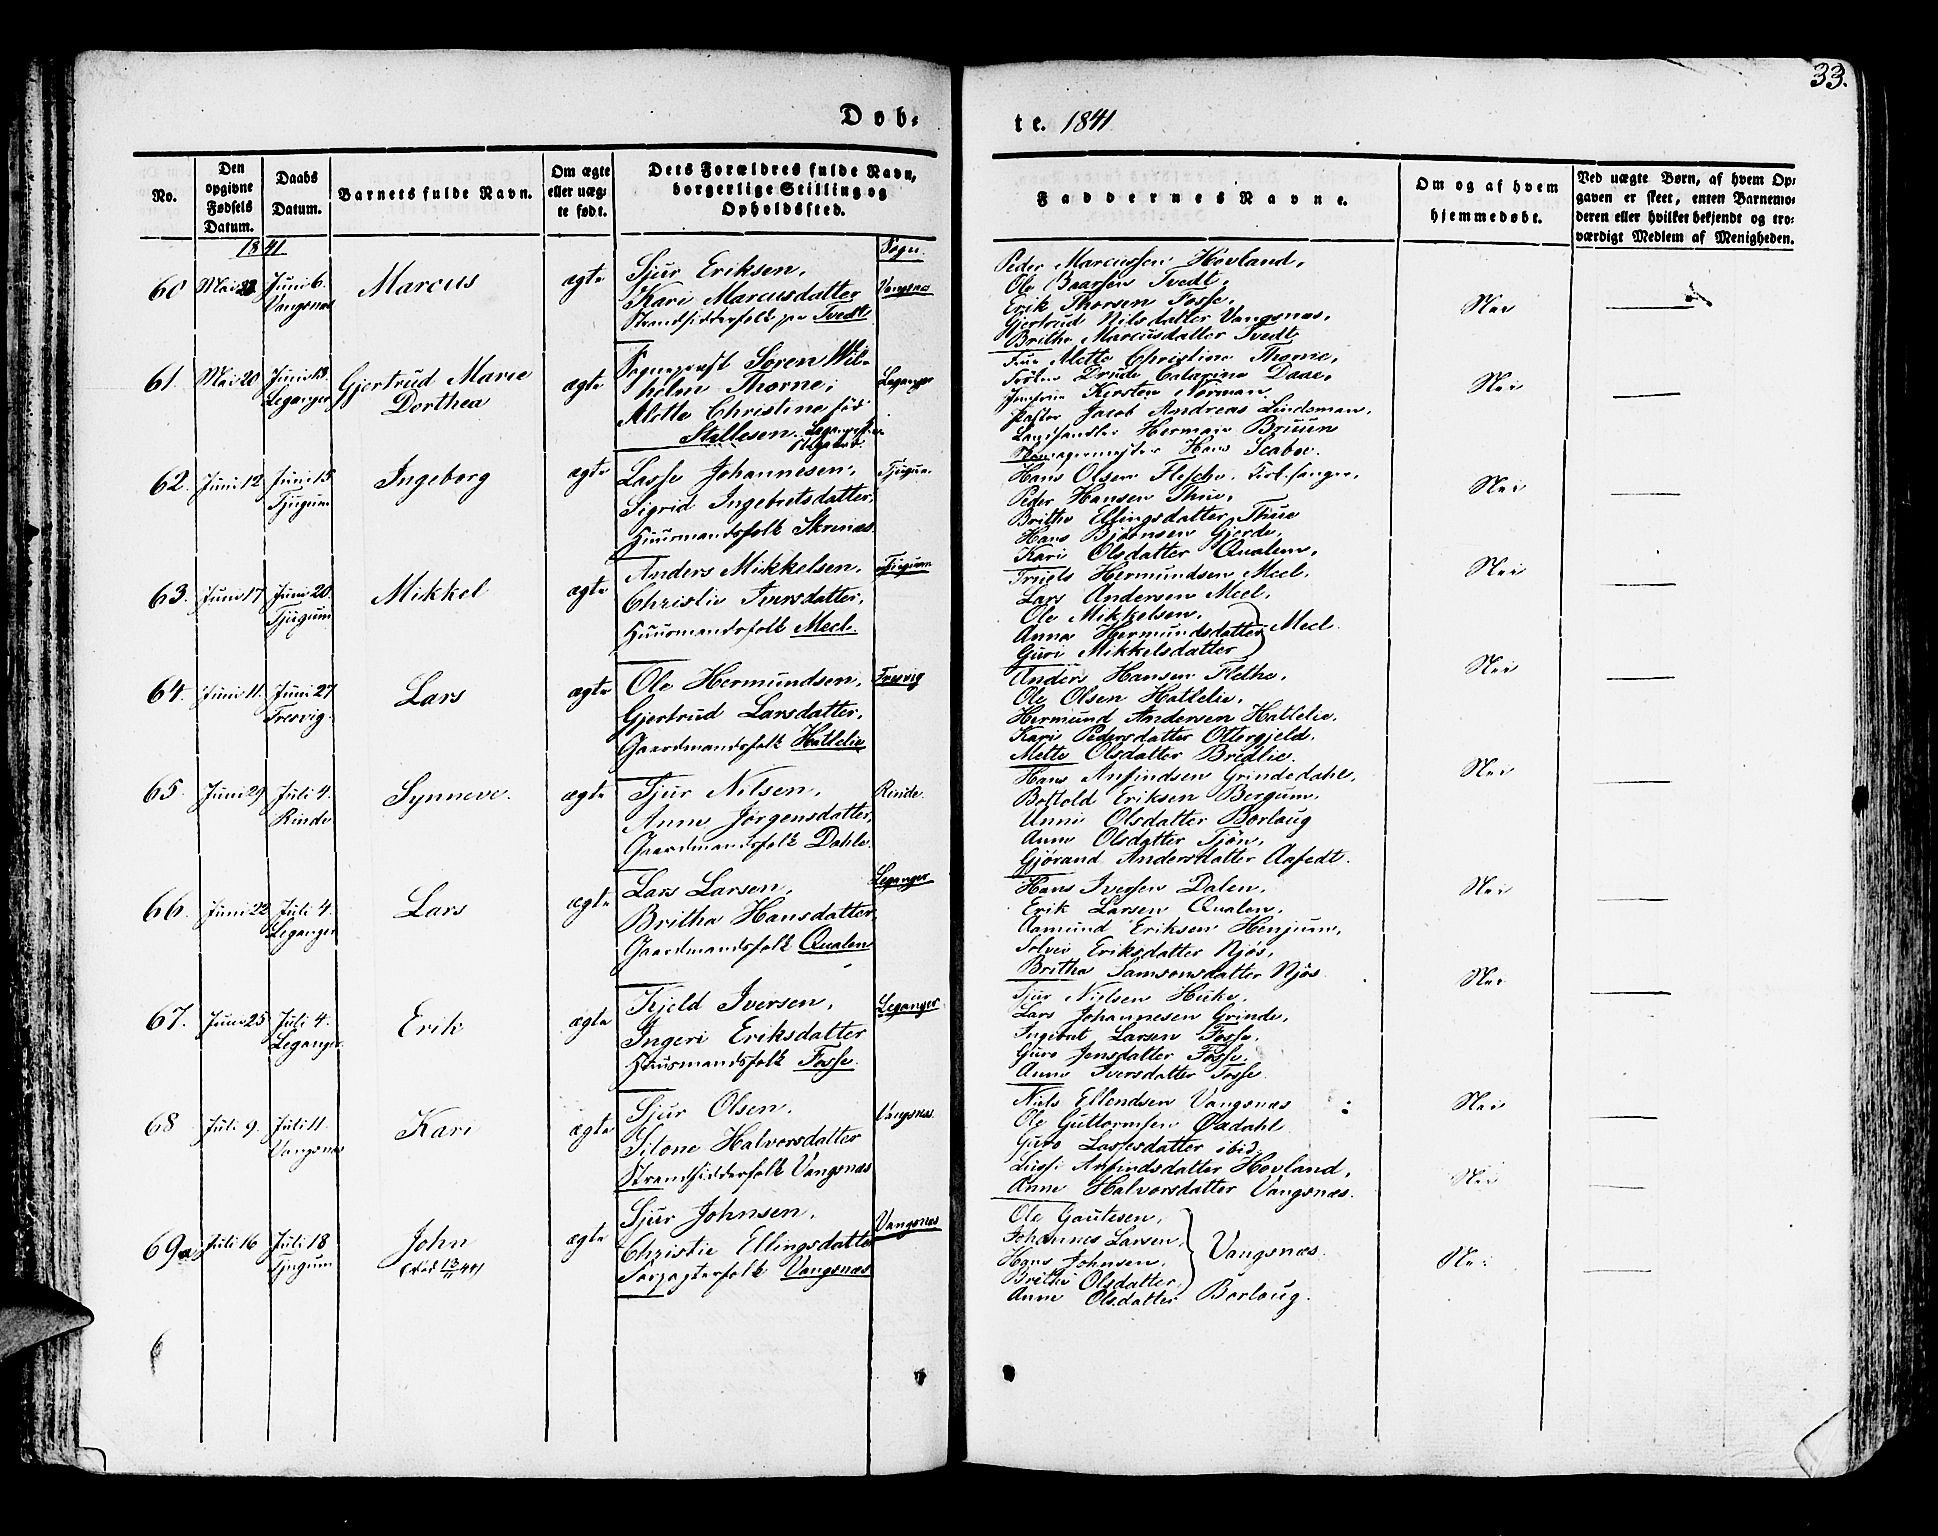 33.
Døb-
te. 1841
No.
Den opgivne Fødsels Datum.
Daabs Datum.
Barnets fulde Navn.
Om ægte eller uægte født.
Dets Forældres fulde Navn, borgerlige Stilling og Opholdssted.
Faddernes Navne.
Om og af hvem hjemmedøbt.
Ved uægte Børn, af hvem Opgaven er skeet, enten Barnemoderen eller hvilket bekjendt og troværdigt Medlem af Menigheden.
1841
Sogn.
60 Mai 23 Juni 6. Vangsnæs Marcus ægte
Sjur Eriksen,
Kari Marcusdatter
Strandsidderfolk paa Tvedt
Vangsnæs
Peder Marcussen Hovland,
Ole Baarsen Tvedt,
Erik Thorsen Fosse,
Gjertrud Nilsdatter Vangsnæs,
Britha Marcusdatter Tvedt
Nei
61. Mai 20 Juni 13. Leganger Gjertrud Marie
Dorthea ægte
Sognepræst Søren Wil-
helm Thorne,
Mette Christine fød
Stillesen.
Leganger
Mette Christine Thorne,
Frøken Drude Catarina Daae,
Jomfrue Kirsten Norman.
Pastor Jacob Andreas Lindsman,
Landhandler Herman Bruun
Hans Scabo.
Nei
62. Juni 12 Juni 15 Tjugum Ingeborg ægte
Lasse Johannesen,
Sigrid Ingebretsdatter,
Huusmandsfolk Skrenæs.
Tjugum
Hans Olsen Flesche, Kirkesanger,
Peder Hansen Thue,
Britha Ellingsdatter Thue
Hans Bjørnsen Gjerde,
Kari Olsdatter Qualem,
Nei
63. Juni 17 Juni 20. Tjugum Mikkel ægte
Anders Mikkelsen,
Christie Iversdatter,
Huusmandsfolk Meel.
Tjugum
Truels Hermundsen Meel,
Lars Andersen Meel,
Ole Mikkelsen,
Anna Hermundsdatter Meel.
Guri Mikkelsdatter
Nei
64. Juni 11. Juni 27 Fresvig. Lars ægte
Ole Hermundsen,
Gjertrud Larsdatter,
Gaardmandsfolk Hatlelie
Fresvig
Anders Hansen Flethe,
Ole Olsen Hatlelie,
Hermund Andersen Hatlelie,
Kari Pedersdatter Ottergjeld.
Mette Olsdatter Bredlie.
Nei
65. Juni 29 Juli 4. Rinde Synneve. ægte
Sjur Nilsen,
Anna Jørgensdatter,
Gaardmandsfolk Dahle.
Rinde.
Hans Anfindsen Grindedahl,
Bottold Eriksen Bergum,
Anni Olsdatter Borlaug
Anne Olsdatter Tjøn,
Gjørand Andersdatter Aafedt.
Nei
66. Juni 22 Juli 4. Leganger Lars ægte
Lars Larsen,
Britha Hansdatter,
Gaardmandsfolk Qualen
Leganger
Hans Iversen Dalen,
Erik Larsen Qualen,
Aamund Eriksen Henjum,
Solvei Eriksdatter Njøs,
Britha Samsonsdatter Njøs.
Nei
67. Juni 25 Juli 4. Leganger Erik ægte
Kjeld Iversen,
Ingeri Eriksdatter
Huusmandsfolk Fosse.
Leganger
Sjur Nielsen Huke,
Lars Johannesen Grinde,
Ingebret Larsen Fosse,
Guro Jensdatter Fosse,
Anne Iversdatter Fosse.
Nei
68 Juli 9. Juli 11. Vangsnæs Kari ægte
Sjur Olsen,
Sitone Halvorsdatter
Strandsidderfolk Vangsnæs
Vangsnæs.
Niels Ellendsen Vangsnæs
Ole Guttormsen Øvdahl
Guro Lassesdatter ibid,
Lussi Anfindsdatter Hovland,
Anne Halvorsdatter Vangsnæs.
Nei
Nei
69 Juli 16 Juli 18 Tjugum John
(død 13/11 44) ægte
Sjur Johnsen,
Christie Ellingsdatter
Forpagterfolk Vangsnæs
Vangsnæs
Ole Gautesen,
Johannes Larsen,
Hans Johnsen, Vangsnæs.
Brithe Olsdatter,
Anne Olsdatter Borlaug.
Nei